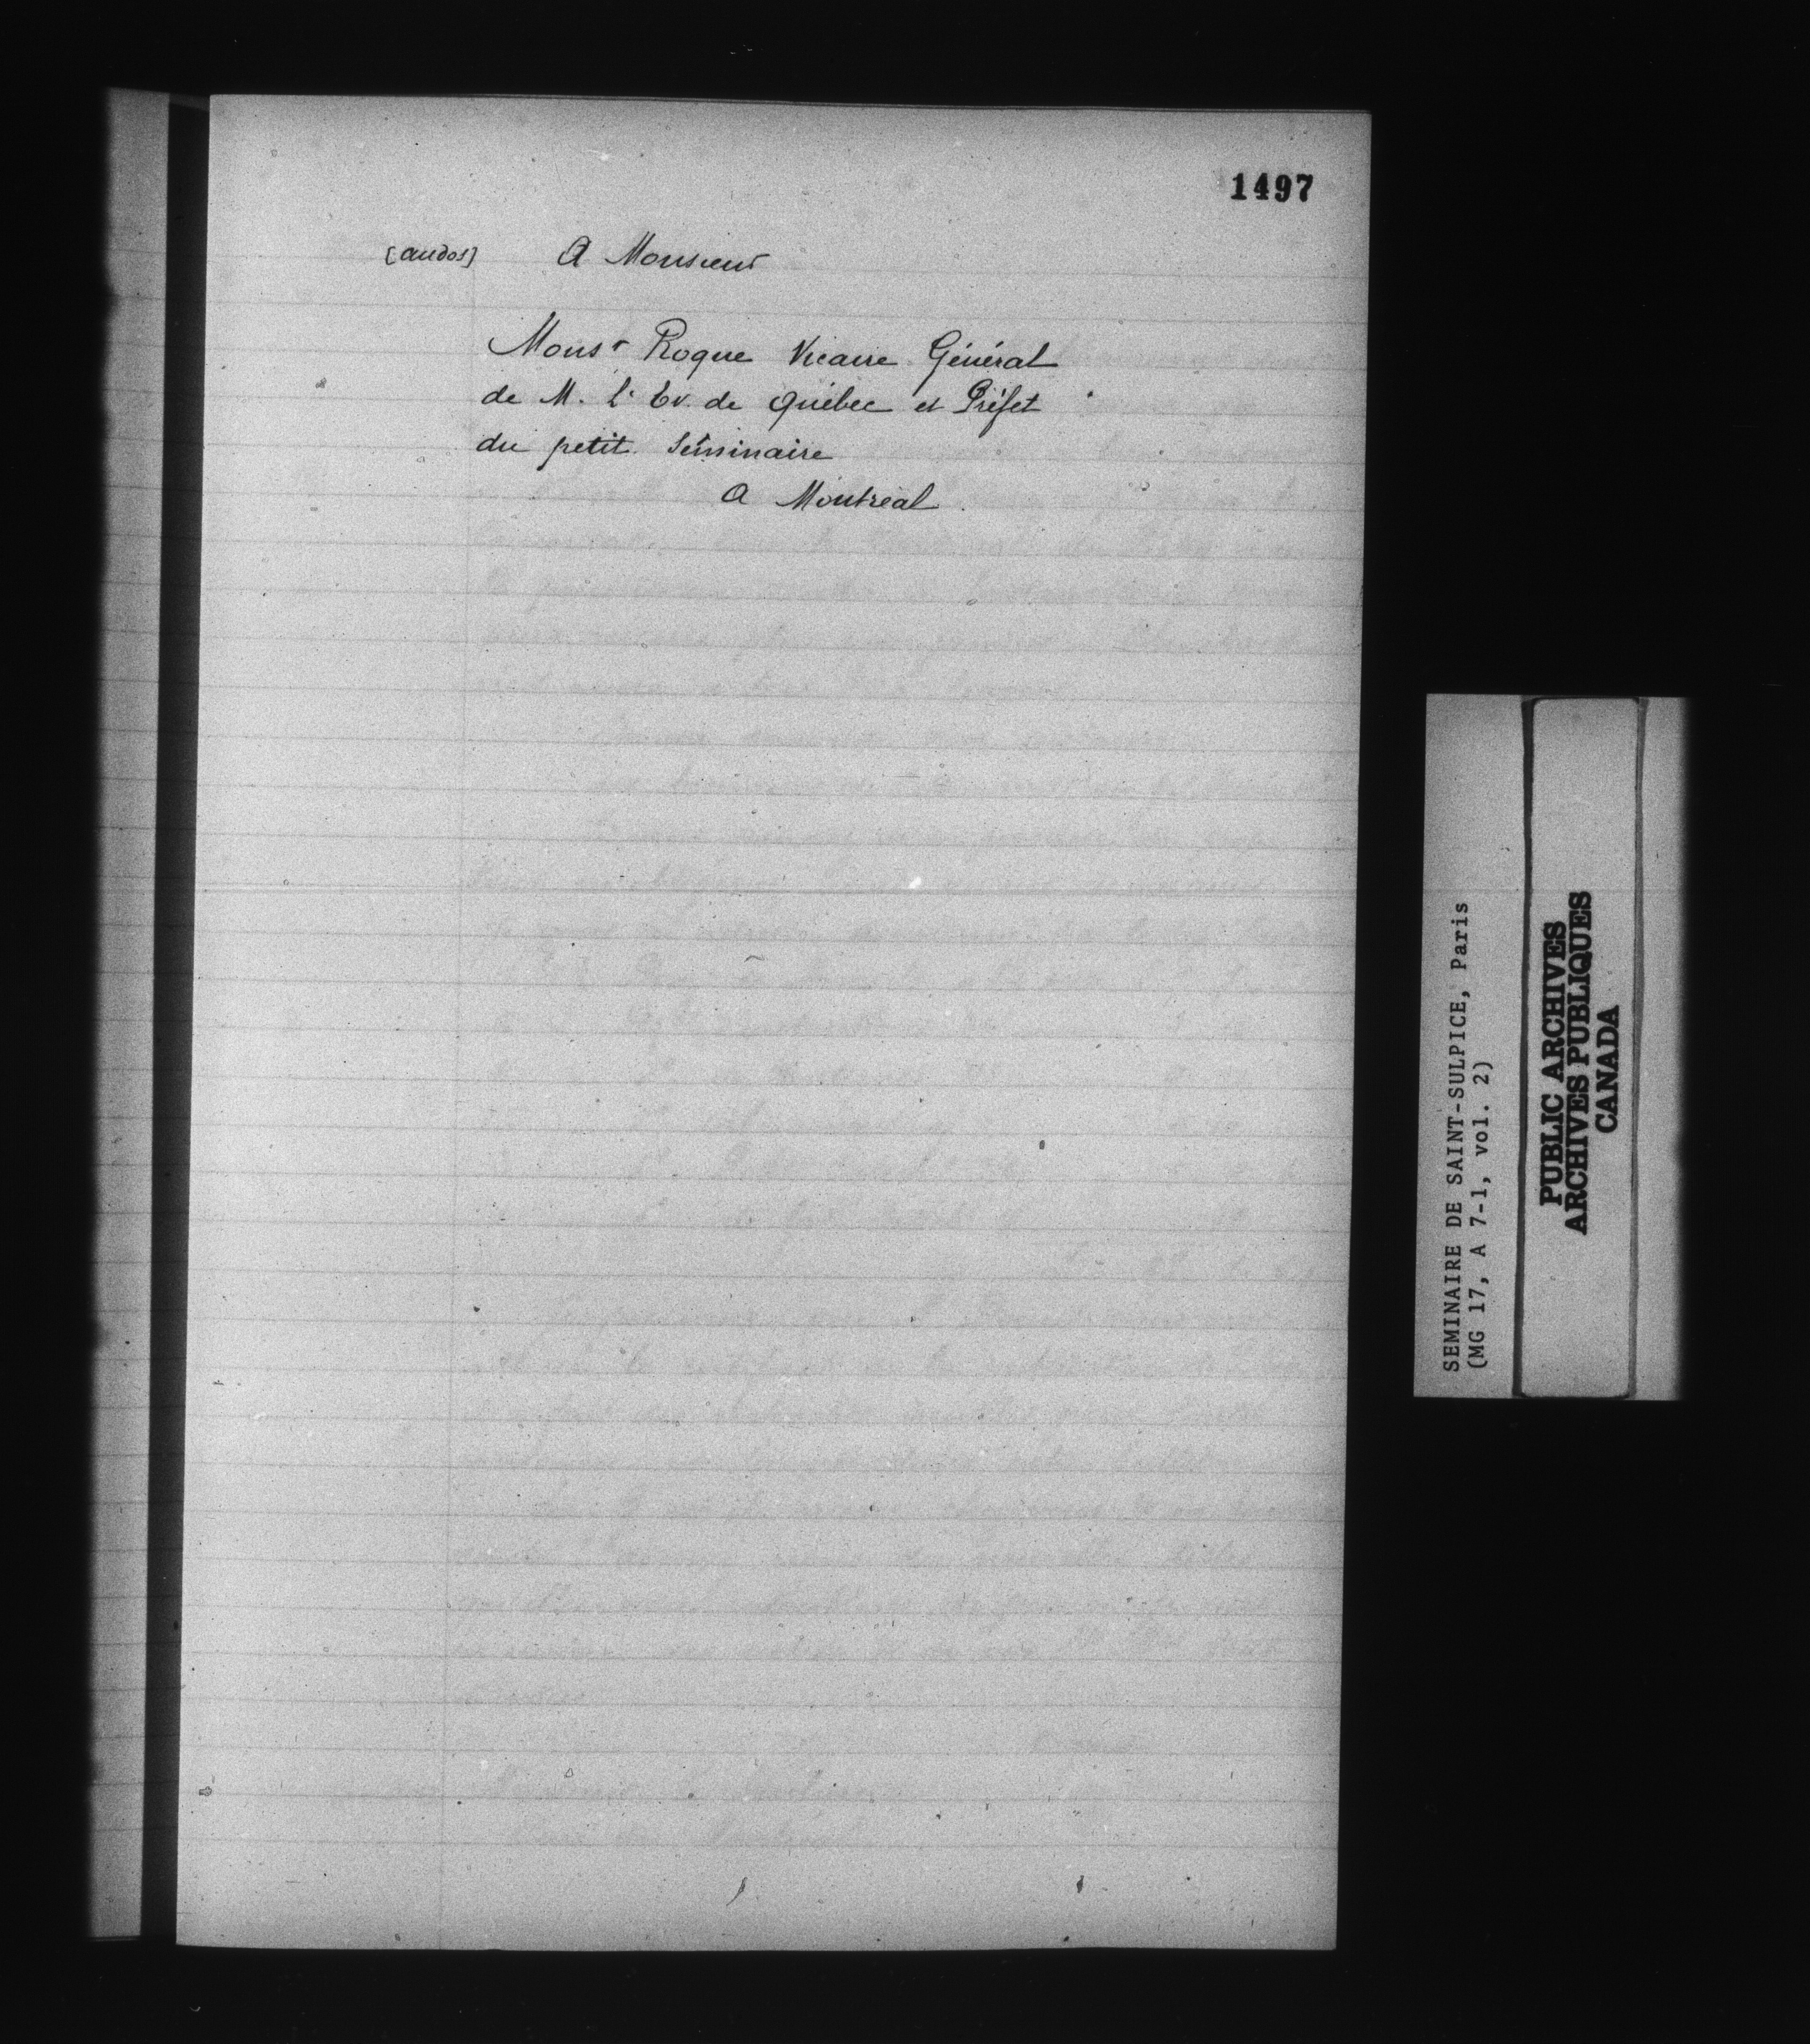 1497
[au dos] A Monsieur
Monsr Roque Vicaire Général
de M. l'Ev. de Québec et Préfet
du petit Séminaire
A Montréal.
SEMINAIRE DE SAINT-SULPICE, Paris
(MG 17, A 7-1, vol. 2)
PUBLIC ARCHIVES
ARCHIVES PUBLIQUES
CANADA